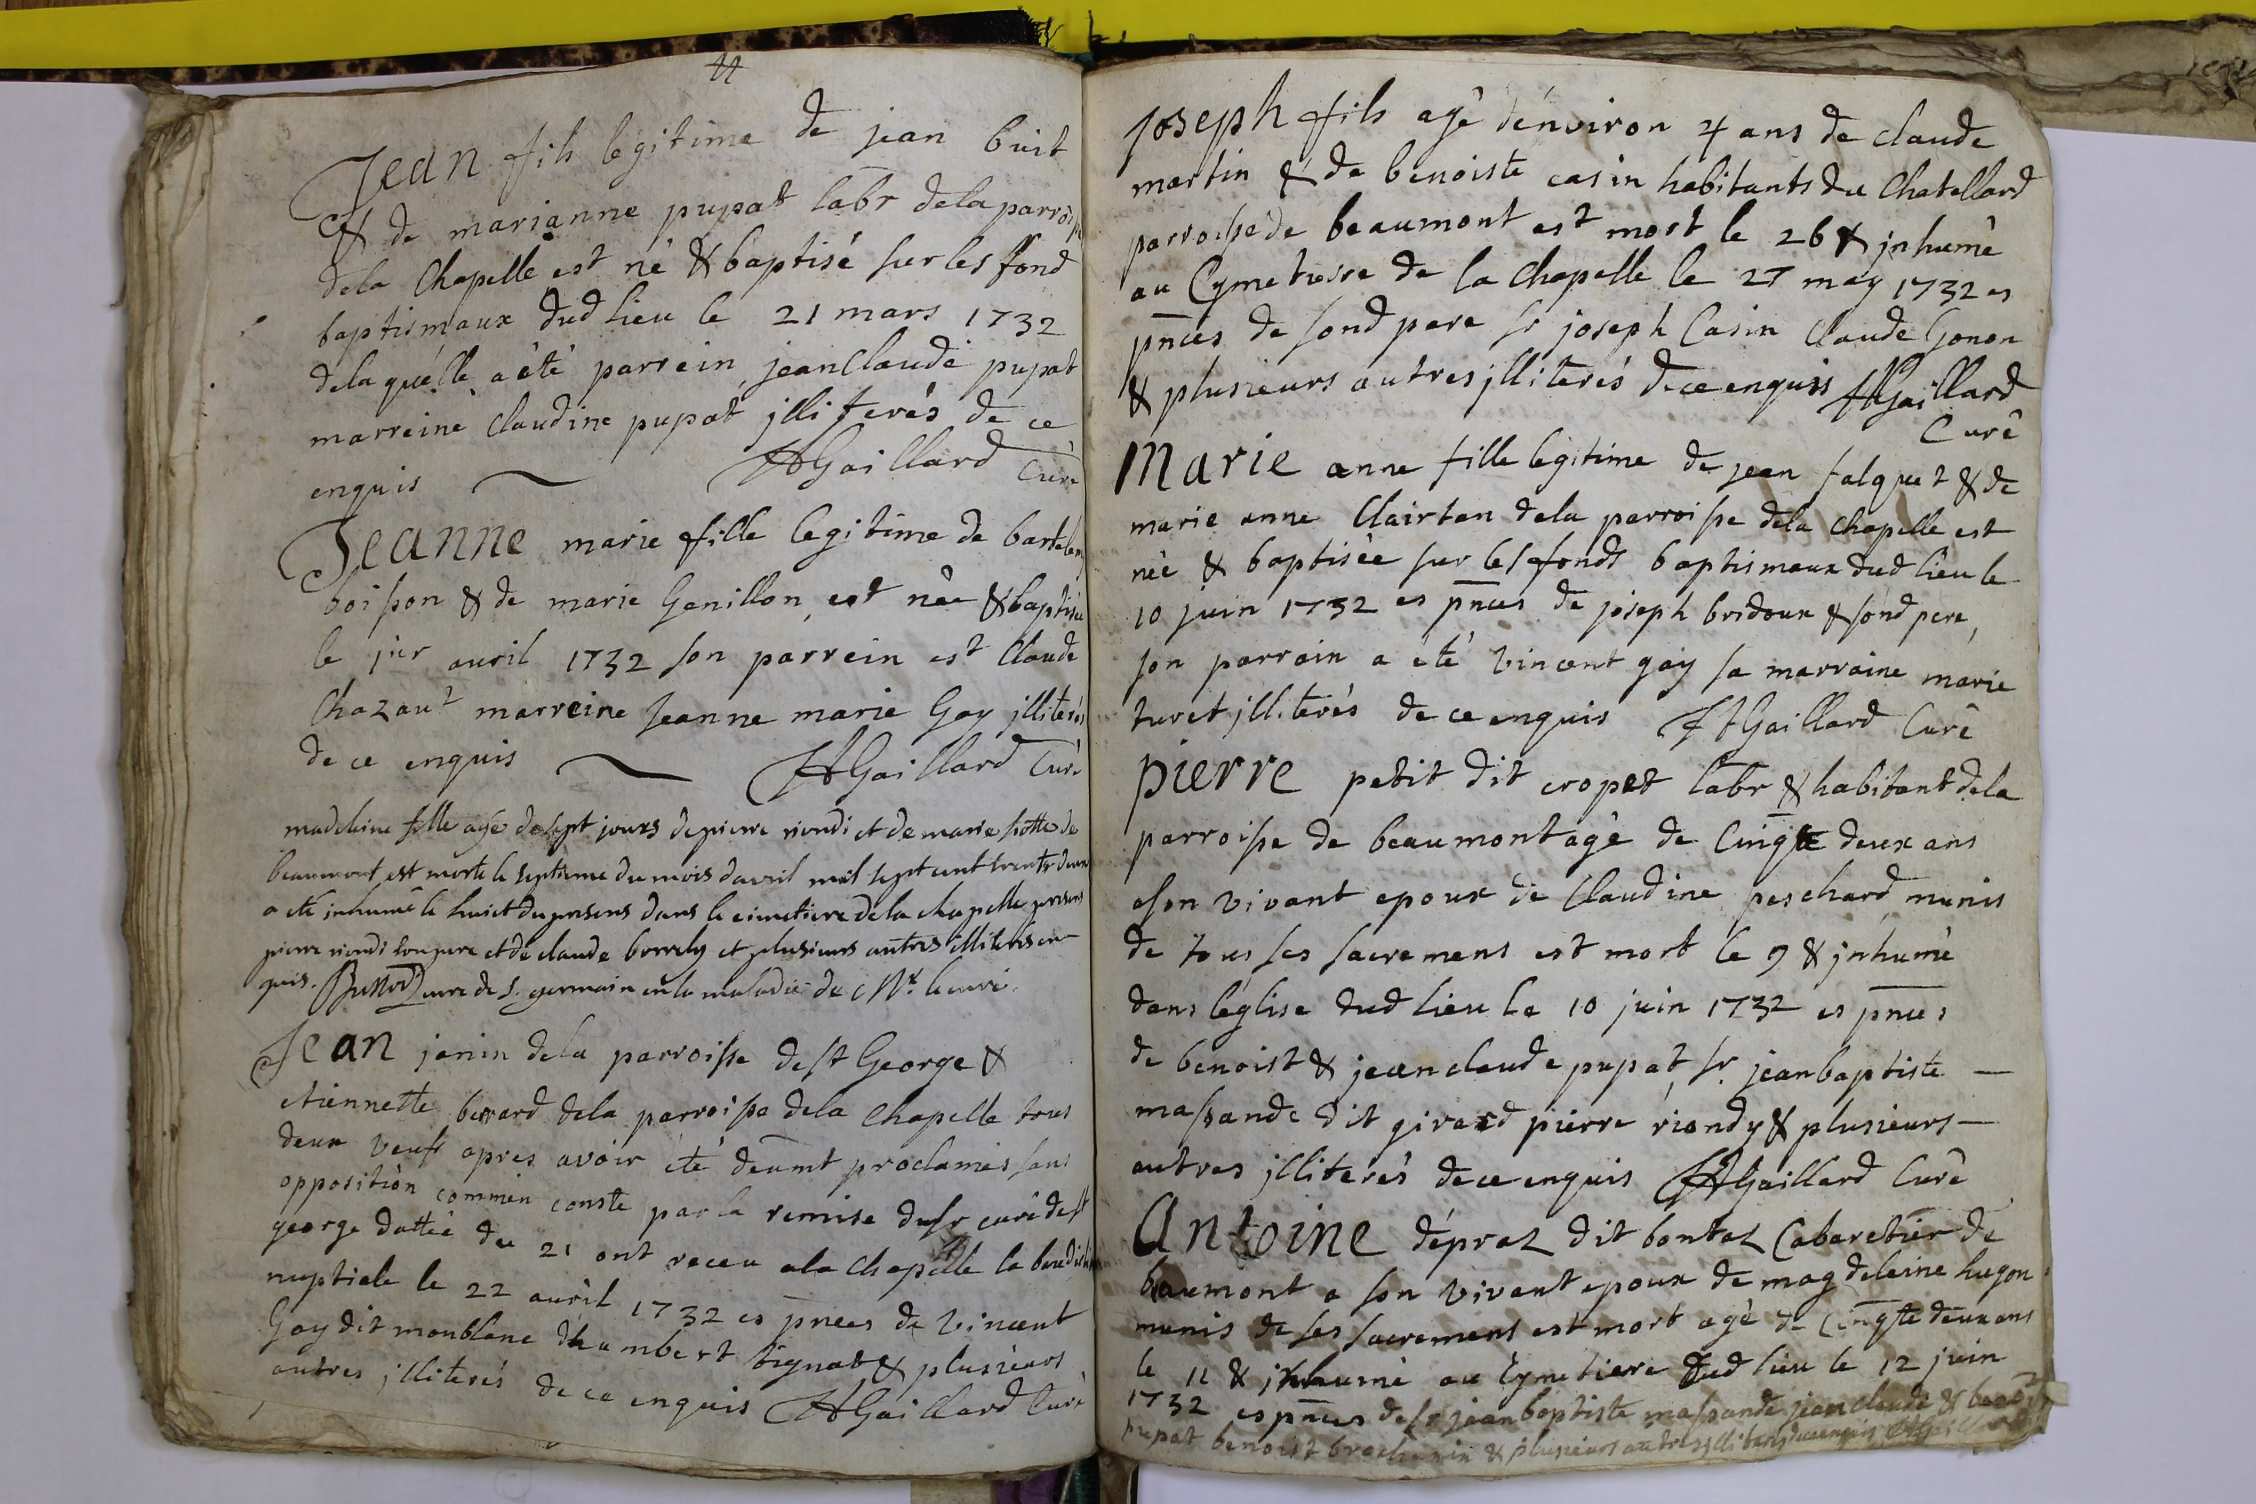 Jean fils legitime de jean buit
& de marianne pupat labr dela parroiße
dela Chapelle est né & baptisé sur les fond
baptismaux dud lieu le 21 mars 1732
delaquélle a été parrein jeanClaude pupat
marreine Claudine pupat jlliterés de ce
enquis HGaillard Curé
Jeanne marie fille legitime de bartelemy
boißon & de marie Genillon est née & baptisée
le jer auril 1732 son parrein est Claude
Chazaut marreine Jeanne marie Gay jlliterés
de ce enquis HGaillard Curé
madeleine fille agé de sept jours de pierre riondi et de marie sotte de
beaumont est morte le septieme du mois davril mil sept cent trente deux
a eté inhumé le huict du presens dans le cimetiere dela chapelle presens
pierre riondi son pere et de claude borrely et plusieurs autres illiterés en-
quis. curé de s. germain en la maladie de Mr. le curé.
Jean janin dela parroisse de st George &
etiennette berrard dela parroiße dela Chapelle tous
deux veufs apres avoir été deumt proclamés sans
opposition commen conste par la remise du sr curé de st
george dattée du 21 ont receu ala Chapelle la benediction
nuptiale le 22 auril 1732 es pnces de Vincent
Gay dit monblanc dhumbert tignat & plusieurs
autres jlliterés de ce enquis HGaillard Curé
Joseph fils agé dénviron 4 ans de Claude
martin & de benoiste casin habitants du Chatellard
parroiße de beaumont est mort le 26 & jnhumé
au Cymetiere de la Chapelle le 27 may 1732 es
pnces de sond pere sr joseph Casin Claude Gonon
& plusieurs autres jlliterés de ce enquis HGaillard
Curé
Marie anne fille legitime de jean falquet & de
marie anne Clairtan dela parroisse dela Chapelle est
née & baptisée sur les fonds baptismaux dud lieu le
10 juin 1732 es pnces de joseph bridoux & sond pere,
son parrain a été Vincent gay sa marraine marie
turet jlliterés de ce enquis HGaillard Curé
Pierre petit dit cropet labr & habitant dela
parroiße de beaumont agé de Cinqte deux ans
a son vivant epoux de Claudine peschard munis
de tous ses sacremens est mort le 9 & jnhumé
dans léglise dud lieu le 10 juin 1732 es pnces
de benoist & jean claude pupat, sr. jeanbaptiste
maßande dit girard pierre riondy & plusieurs
autres jlliterés de ce enquis HGaillard Curé
Antoine dépraz dit bontaz Cabaretier de
beaumont a son vivant epoux de magdeleine hugon
munis de ses sacremens est mort agé de Cinqte deux ans
le 11 & jnhumé au Cymetiere dud lieu le 12 juin
1732 es pnces de sr jeanbaptiste maßande jean claude & benoist
pupat benoist & plusieurs autres jlliterés de ce enquis HGaillard